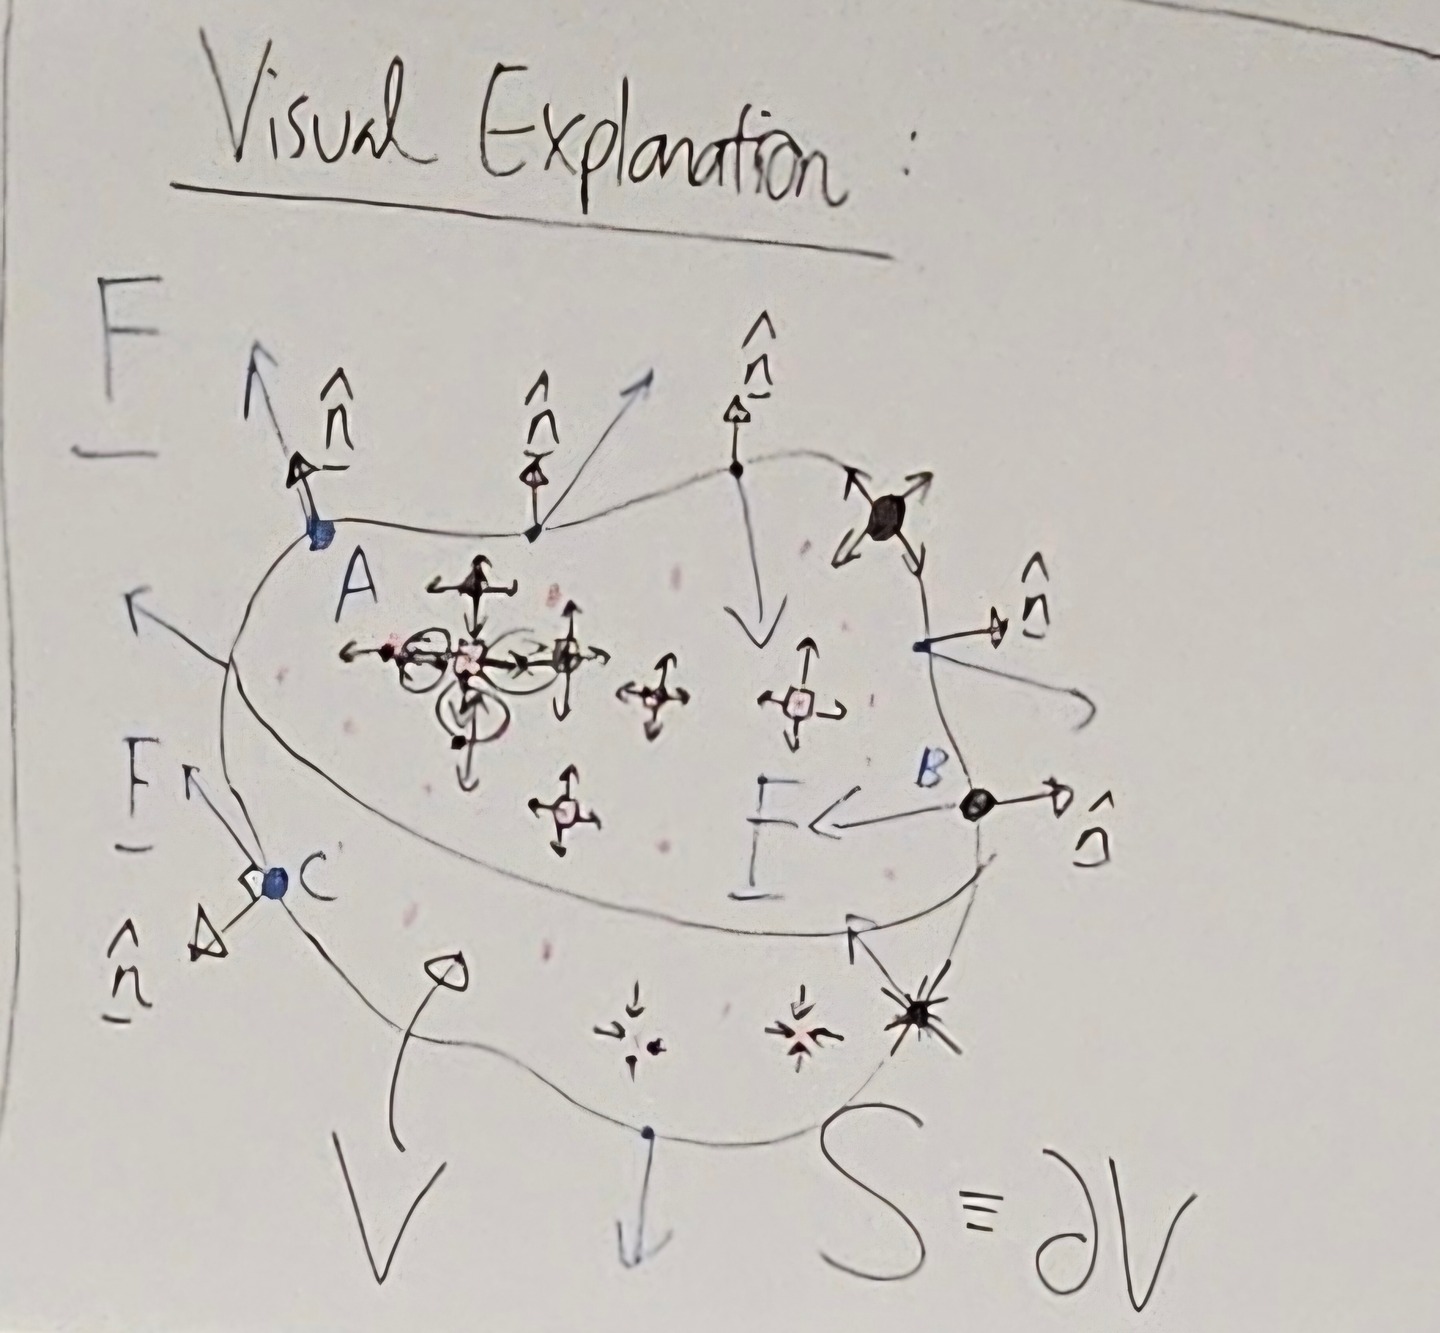 Visual Explanation :
F
n̂
n̂
n̂
A
n̂
F
B
F
n̂
C
n̂
V
S ≡ ∂V